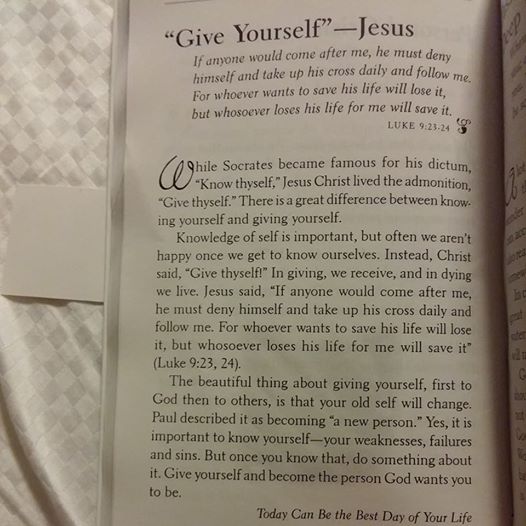 "Give Yourself"—Jesus
If anyone would come after me, he must deny
himself and take up his cross daily and follow me.
For whoever wants to save his life will lose it,
but whosoever loses his life for me will save it.
LUKE 9:23-24
While Socrates became famous for his dictum,
"Know thyself," Jesus Christ lived the admonition,
"Give thyself." There is a great difference between know-
ing yourself and giving yourself.
Knowledge of self is important, but often we aren't
happy once we get to know ourselves. Instead, Christ
said, "Give thyself!" In giving, we receive, and in dying
we live. Jesus said, "If anyone would come after me,
he must deny himself and take up his cross daily and
follow me. For whoever wants to save his life will lose
it, but whosoever loses his life for me will save it"
(Luke 9:23, 24).
The beautiful thing about giving yourself, first to
God then to others, is that your old self will change.
Paul described it as becoming "a new person." Yes, it is
important to know yourself—your weaknesses, failures
and sins. But once you know that, do something about
it. Give yourself and become the person God wants you
to be.
Today Can Be the Best Day of Your Life